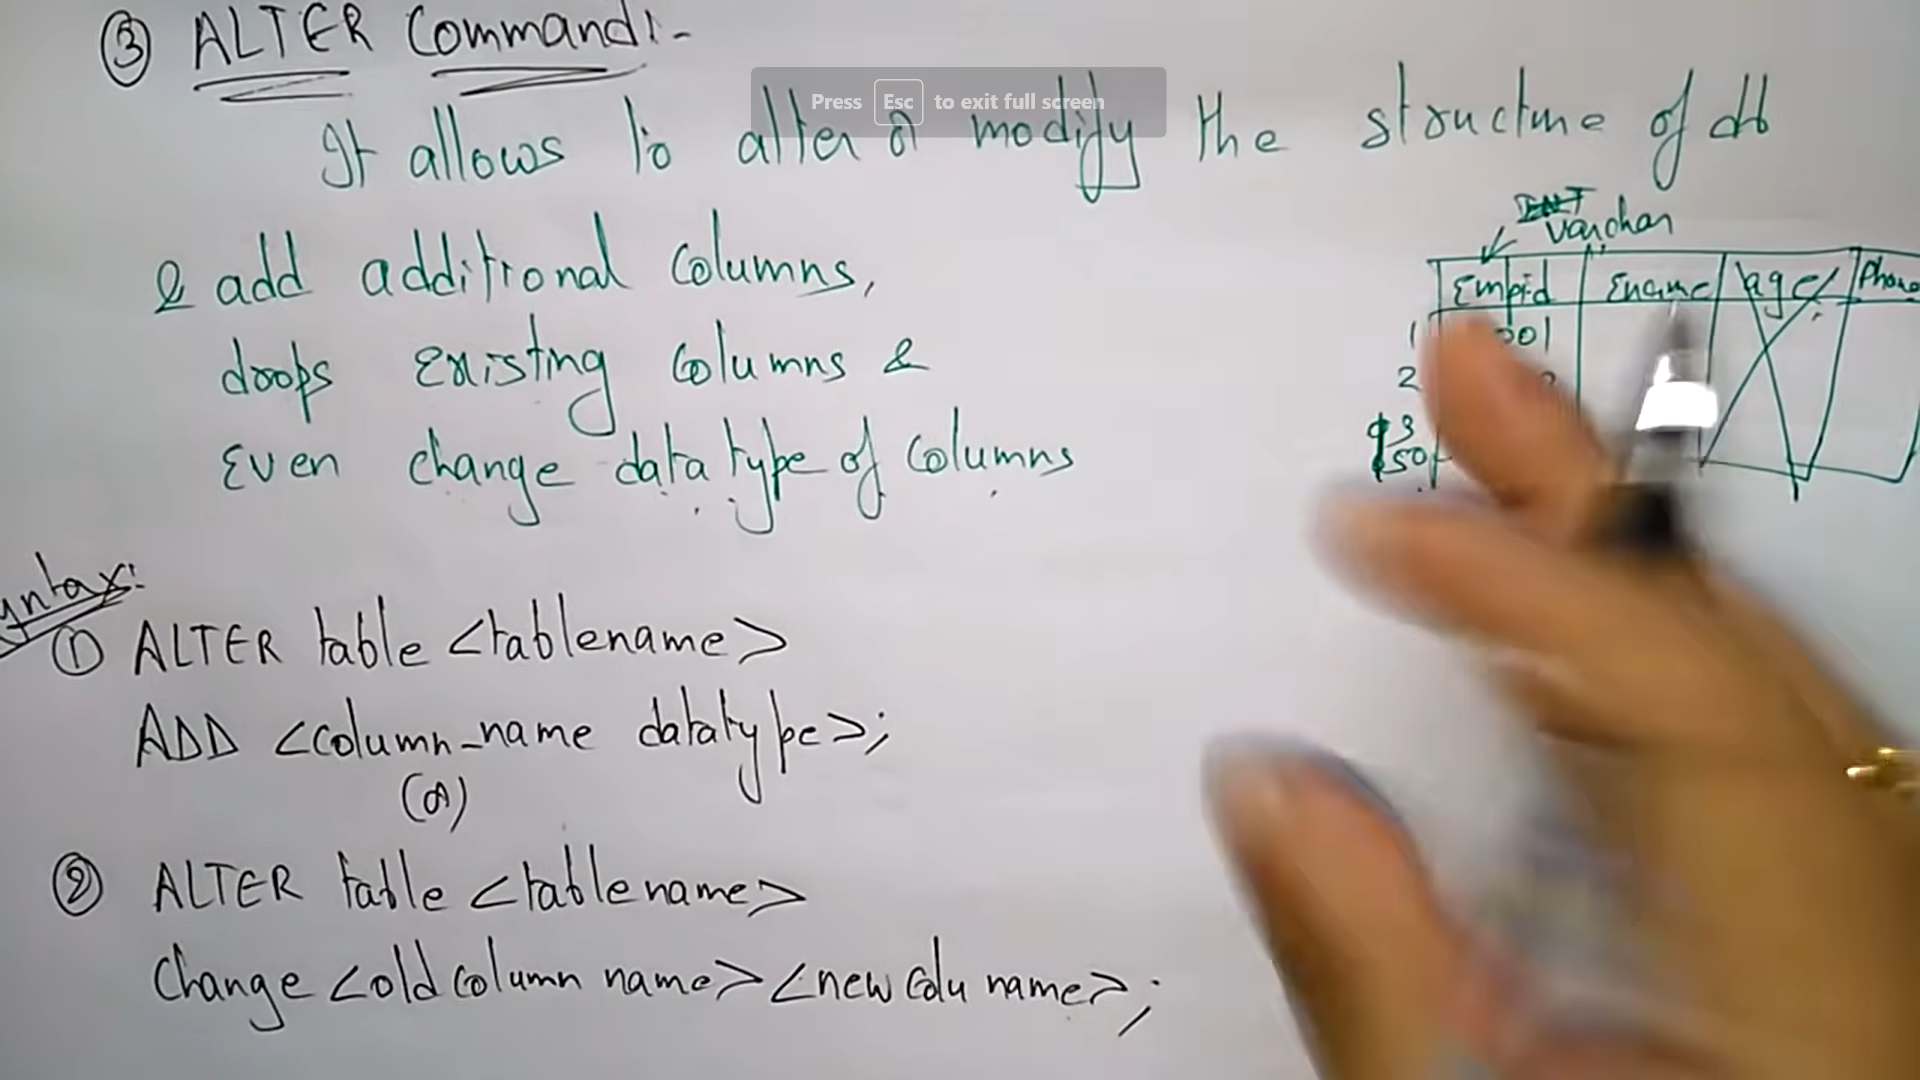 ③ ALTER Command:-
Press Esc to exit full screen
It allows to alter or modify the structure of db
& add additional columns,
drops existing columns &
Even change data type of columns
INT
varchar
Empid Ename age Phone
1 001
2
3
50
Syntax:
① ALTER table <tablename>
ADD <column_name datatype>;
(or)
② ALTER table <tablename>
Change <old column name> <new colu name>;